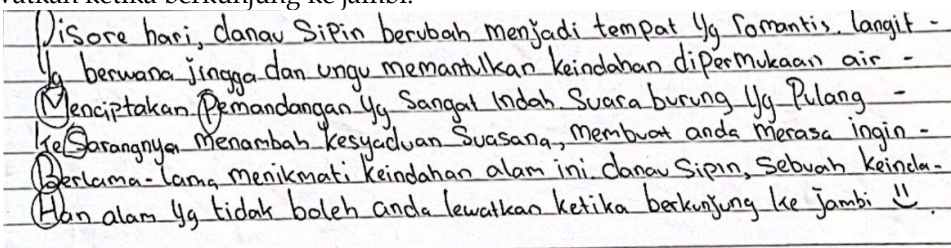 vatkan ketika berkunjung ke jambi.
Disore hari, danau Sipin berubah menjadi tempat yg romantis. langit -
yg berwana jingga dan ungu memantulkan keindahan dipermukaan air -
Menciptakan Pemandangan yg Sangat Indah. Suara burung yg Pulang -
ke Sarangnya Menambah kesyaduan Suasana, membuat anda merasa ingin -
Berlama-lama menikmati keindahan alam ini. danau Sipin, Sebuah keinda-
Han alam yg tidak boleh anda lewatkan ketika berkunjung ke jambi